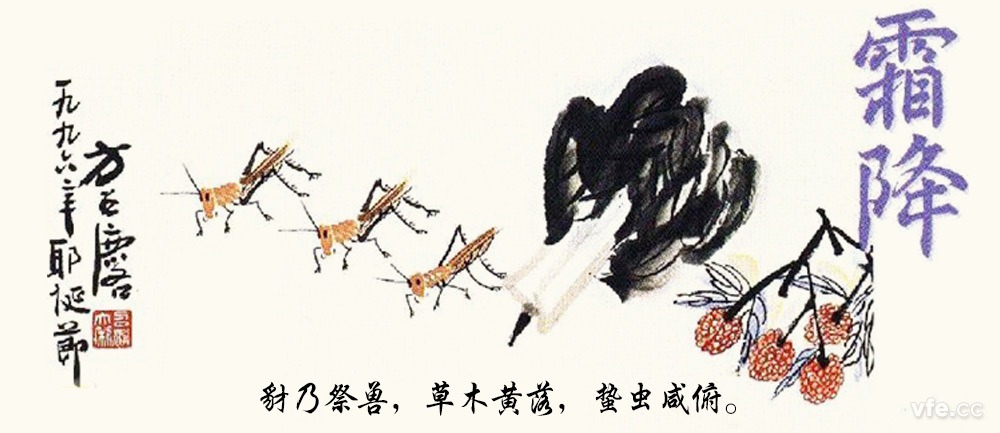 霜降
方召麐
一九九六年耶诞節
豺乃祭兽，草木黄落，蛰虫咸俯。
vfe.cc